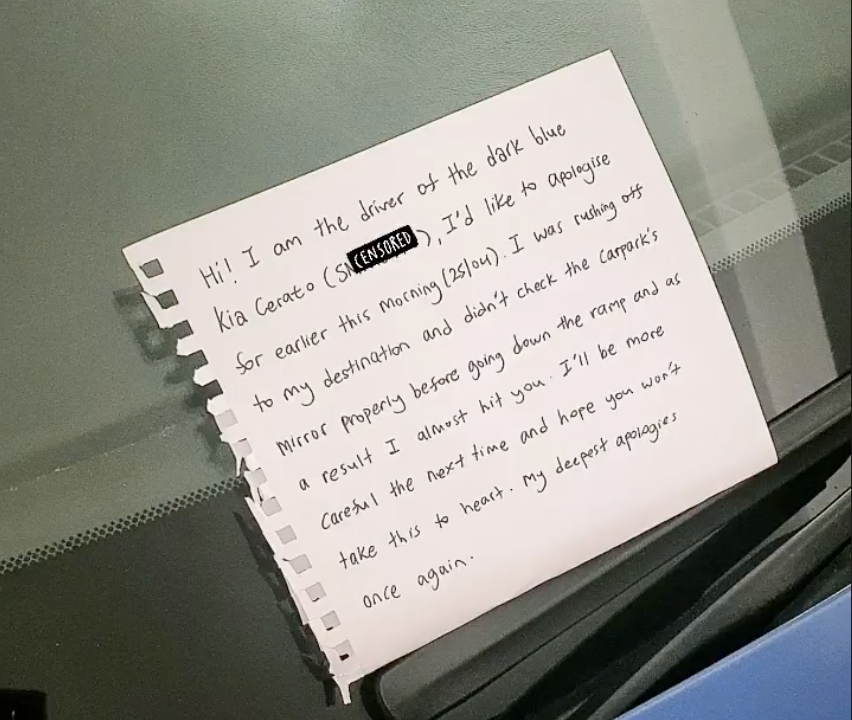 Hi! I am the driver of the dark blue
Kia Cerato (S CENSORED), I'd like to apologise
for earlier this morning (25/04). I was rushing off
to my destination and didn't check the carpark's
mirror properly before going down the ramp and as
a result I almost hit you. I'll be more
careful the next time and hope you won't
take this to heart. My deepest apologies
once again.